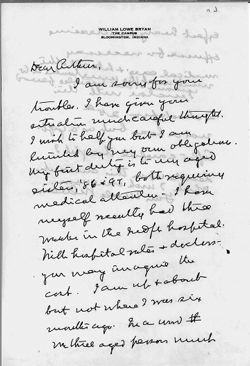 n.d.
WILLIAM LOWE BRYAN
THE CAMPUS
BLOOMINGTON, INDIANA
Dear Arthur,
I am sorry for your
troubles. I have given your
situation much careful thought.
I wish to help you but I am
limited by my own obligations.
My first duty is to my aged
sisters, '86 & 97, both requiring
medical attention. I have
myself recently had three
weeks in the hospital.
With hospital rates & doctors
you may imagine the
cost. I am up & about
but not where I was six
months ago. In a word
we three aged persons much